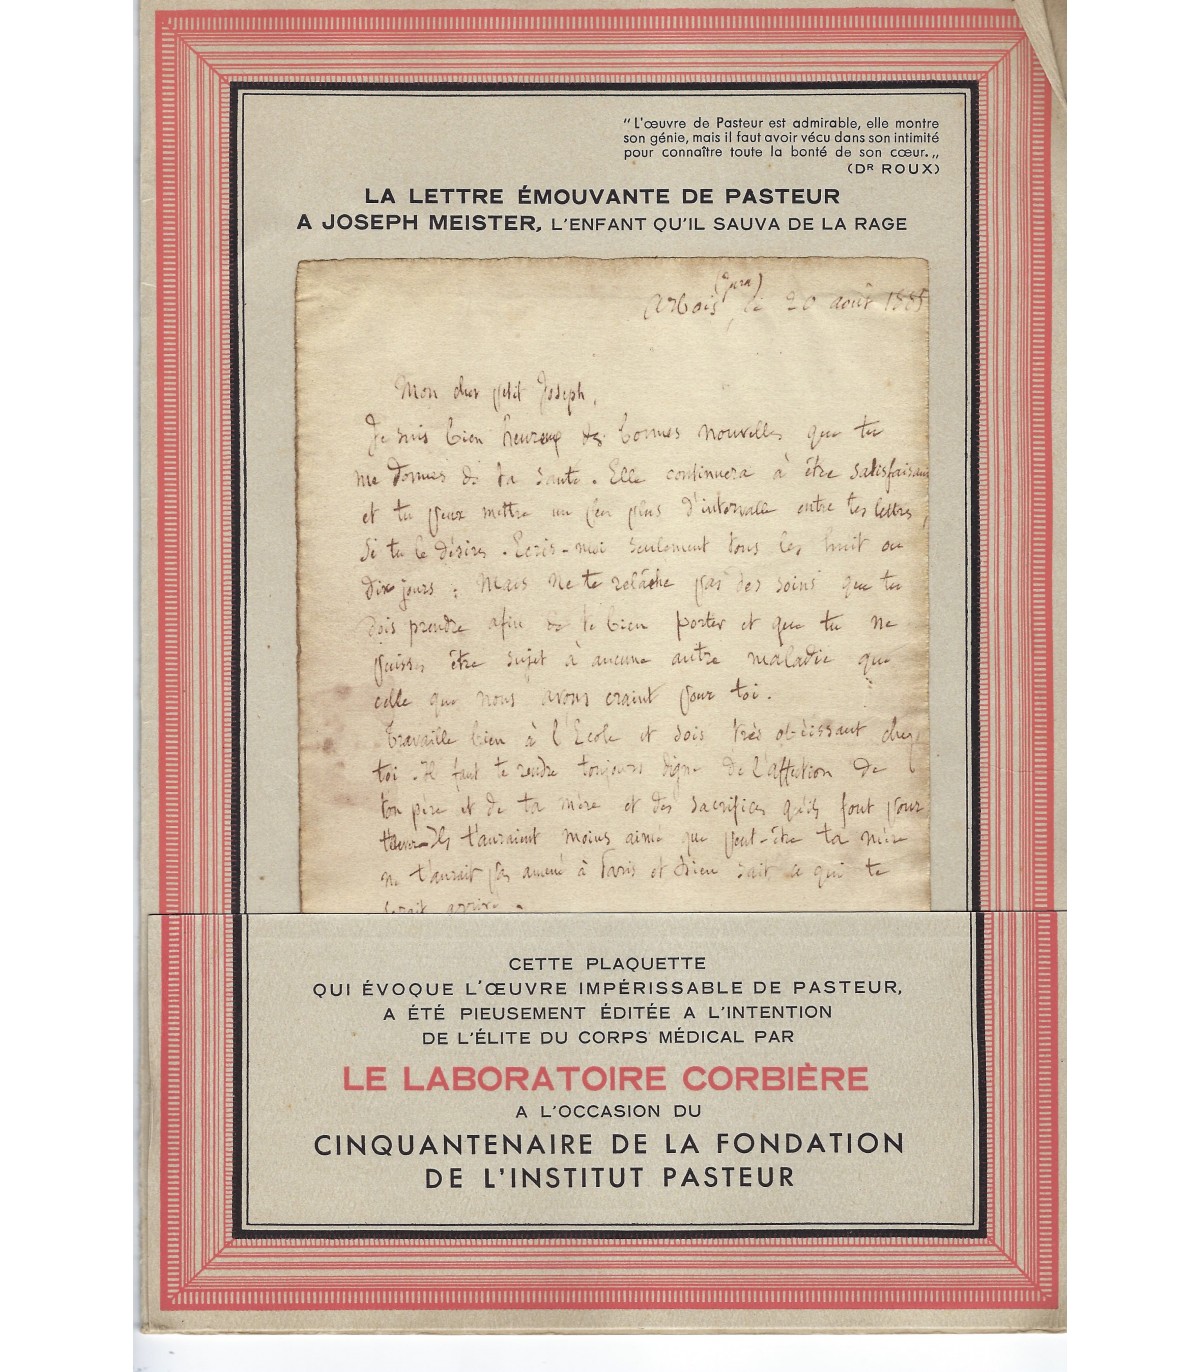 "L'œuvre de Pasteur est admirable, elle montre
son génie, mais il faut avoir vécu dans son intimité
pour connaître toute la bonté de son cœur.„
(Dr ROUX)
LA LETTRE ÉMOUVANTE DE PASTEUR
A JOSEPH MEISTER, L'ENFANT QU'IL SAUVA DE LA RAGE
(Jura)
Arbois, le 20 août 1885
Mon cher petit Joseph,
Je suis bien heureux des bonnes nouvelles que tu
me donnes de ta santé. Elle continuera à être satisfaisan
et tu peux mettre un peu plus d'intervalle entre tes lettres,
si tu le désires. Ecris-moi seulement tous les huit ou
dix jours; mais ne te relâche pas des soins que tu
dois prendre afin de te bien porter et que tu ne
puisses être sujet à aucune autre maladie que
celle que nous avons craint pour toi.
Travaille bien à l'Ecole et sois très obéissant chez
toi. Il faut te rendre toujours digne de l'affection de
ton père et de ta mère et des sacrifices qu'ils font pour
t'élever. Ils t'auraient moins aimé que peut-être ta mère
ne t'aurait pas amené à Paris et Dieu sait ce qui te
serait arrivé.
CETTE PLAQUETTE
QUI ÉVOQUE L'ŒUVRE IMPÉRISSABLE DE PASTEUR,
A ÉTÉ PIEUSEMENT ÉDITÉE A L'INTENTION
DE L'ÉLITE DU CORPS MÉDICAL PAR
LE LABORATOIRE CORBIÈRE
A L'OCCASION DU
CINQUANTENAIRE DE LA FONDATION
DE L'INSTITUT PASTEUR